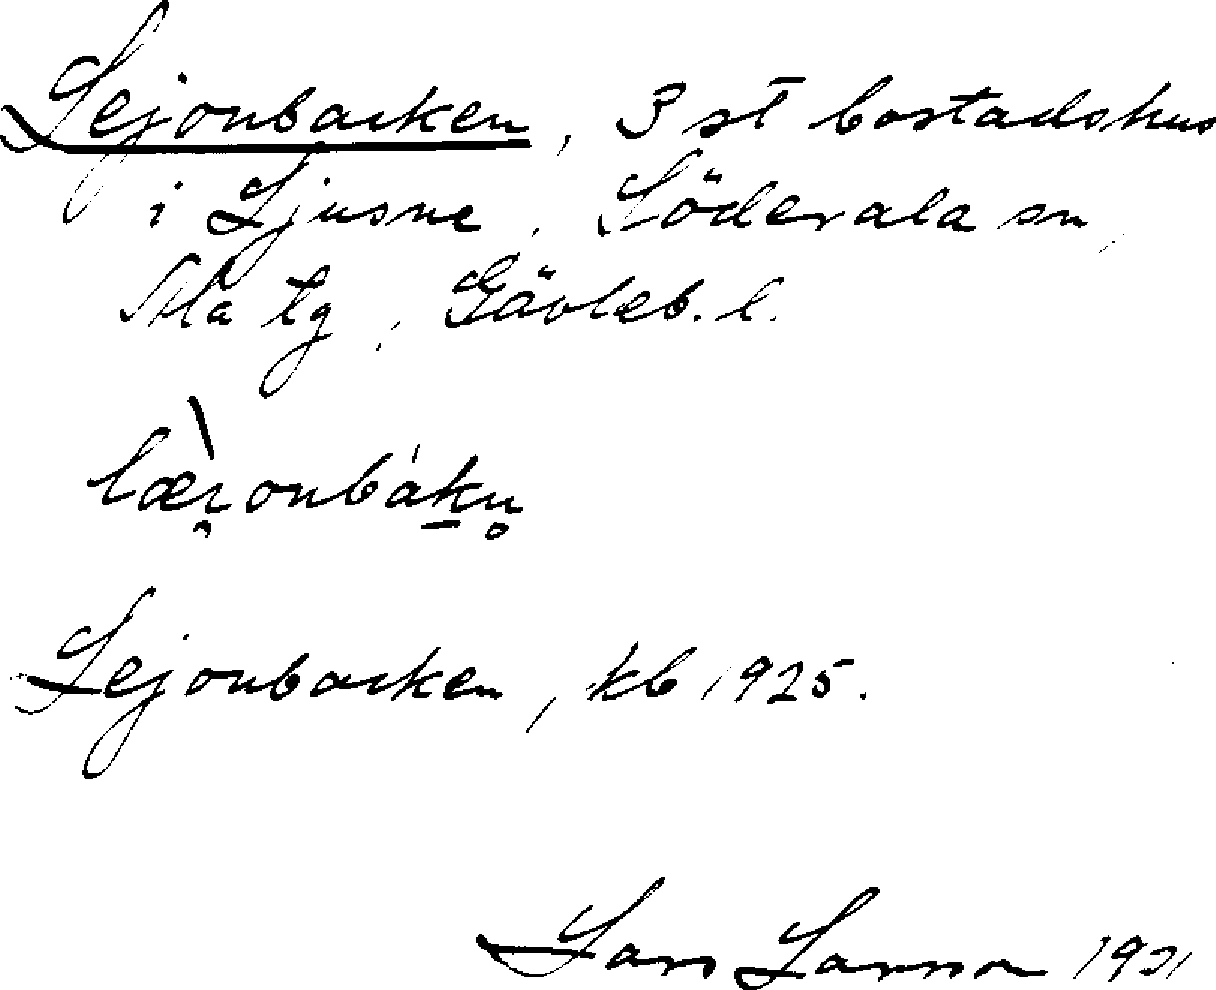 Lejonbacken, 3 st bostadshus
i Ljusne, Söderala sn,
Ala tg, Gävleb. l.
Lejonbacken, kb 1925.
Lars Larsson